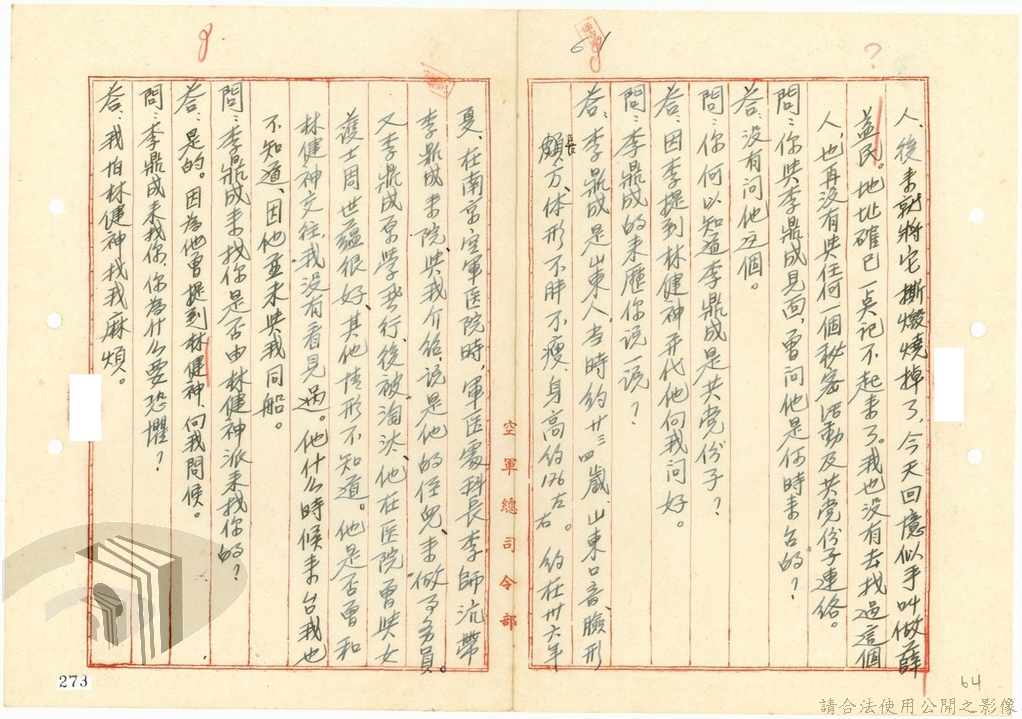 人、後來就將它撕燬燒掉了,今天回憶似乎叫做薛
益民。地址確已一点記不起来了。我也没有去找過這個
人,也再没有與任何一個秘密活動及共党份子連絡。
問:你與李鼎成見面,曾问他是何時来台的?
答:没有问他这個。
問:你何以知道李鼎成是共党份子?
答:因李提到林健神并代他向我问好。
問:李鼎成的来歷你说一说?
答:李鼎成是山東人,当時約廿三四歲,山東口音、臉形
長頗方、体形不胖不瘦、身高約176左右。約在卅六年
夏、在南京空軍医院時,軍医處科長李師沆帶
李鼎成来院,與我介绍,说是他的侄兒、来做事务員。
又李鼎成原学飛行,後被淘汰,他在医院曾與女
護士周世蕴很好、其他情形不知道。他是否曾和
林健神交往,我没有看見過。他什么時候来台我也
不知道、因他並未與我同船。
問:李鼎成来找你是否由林健神派来找你的?
答:是的。因為他曾提到林健神、向我問候。
問:李鼎成来找你,你為什么要恐懼?
答:我怕林健神找我麻煩。
空軍總司令部
273
64
請合法使用公開之影像